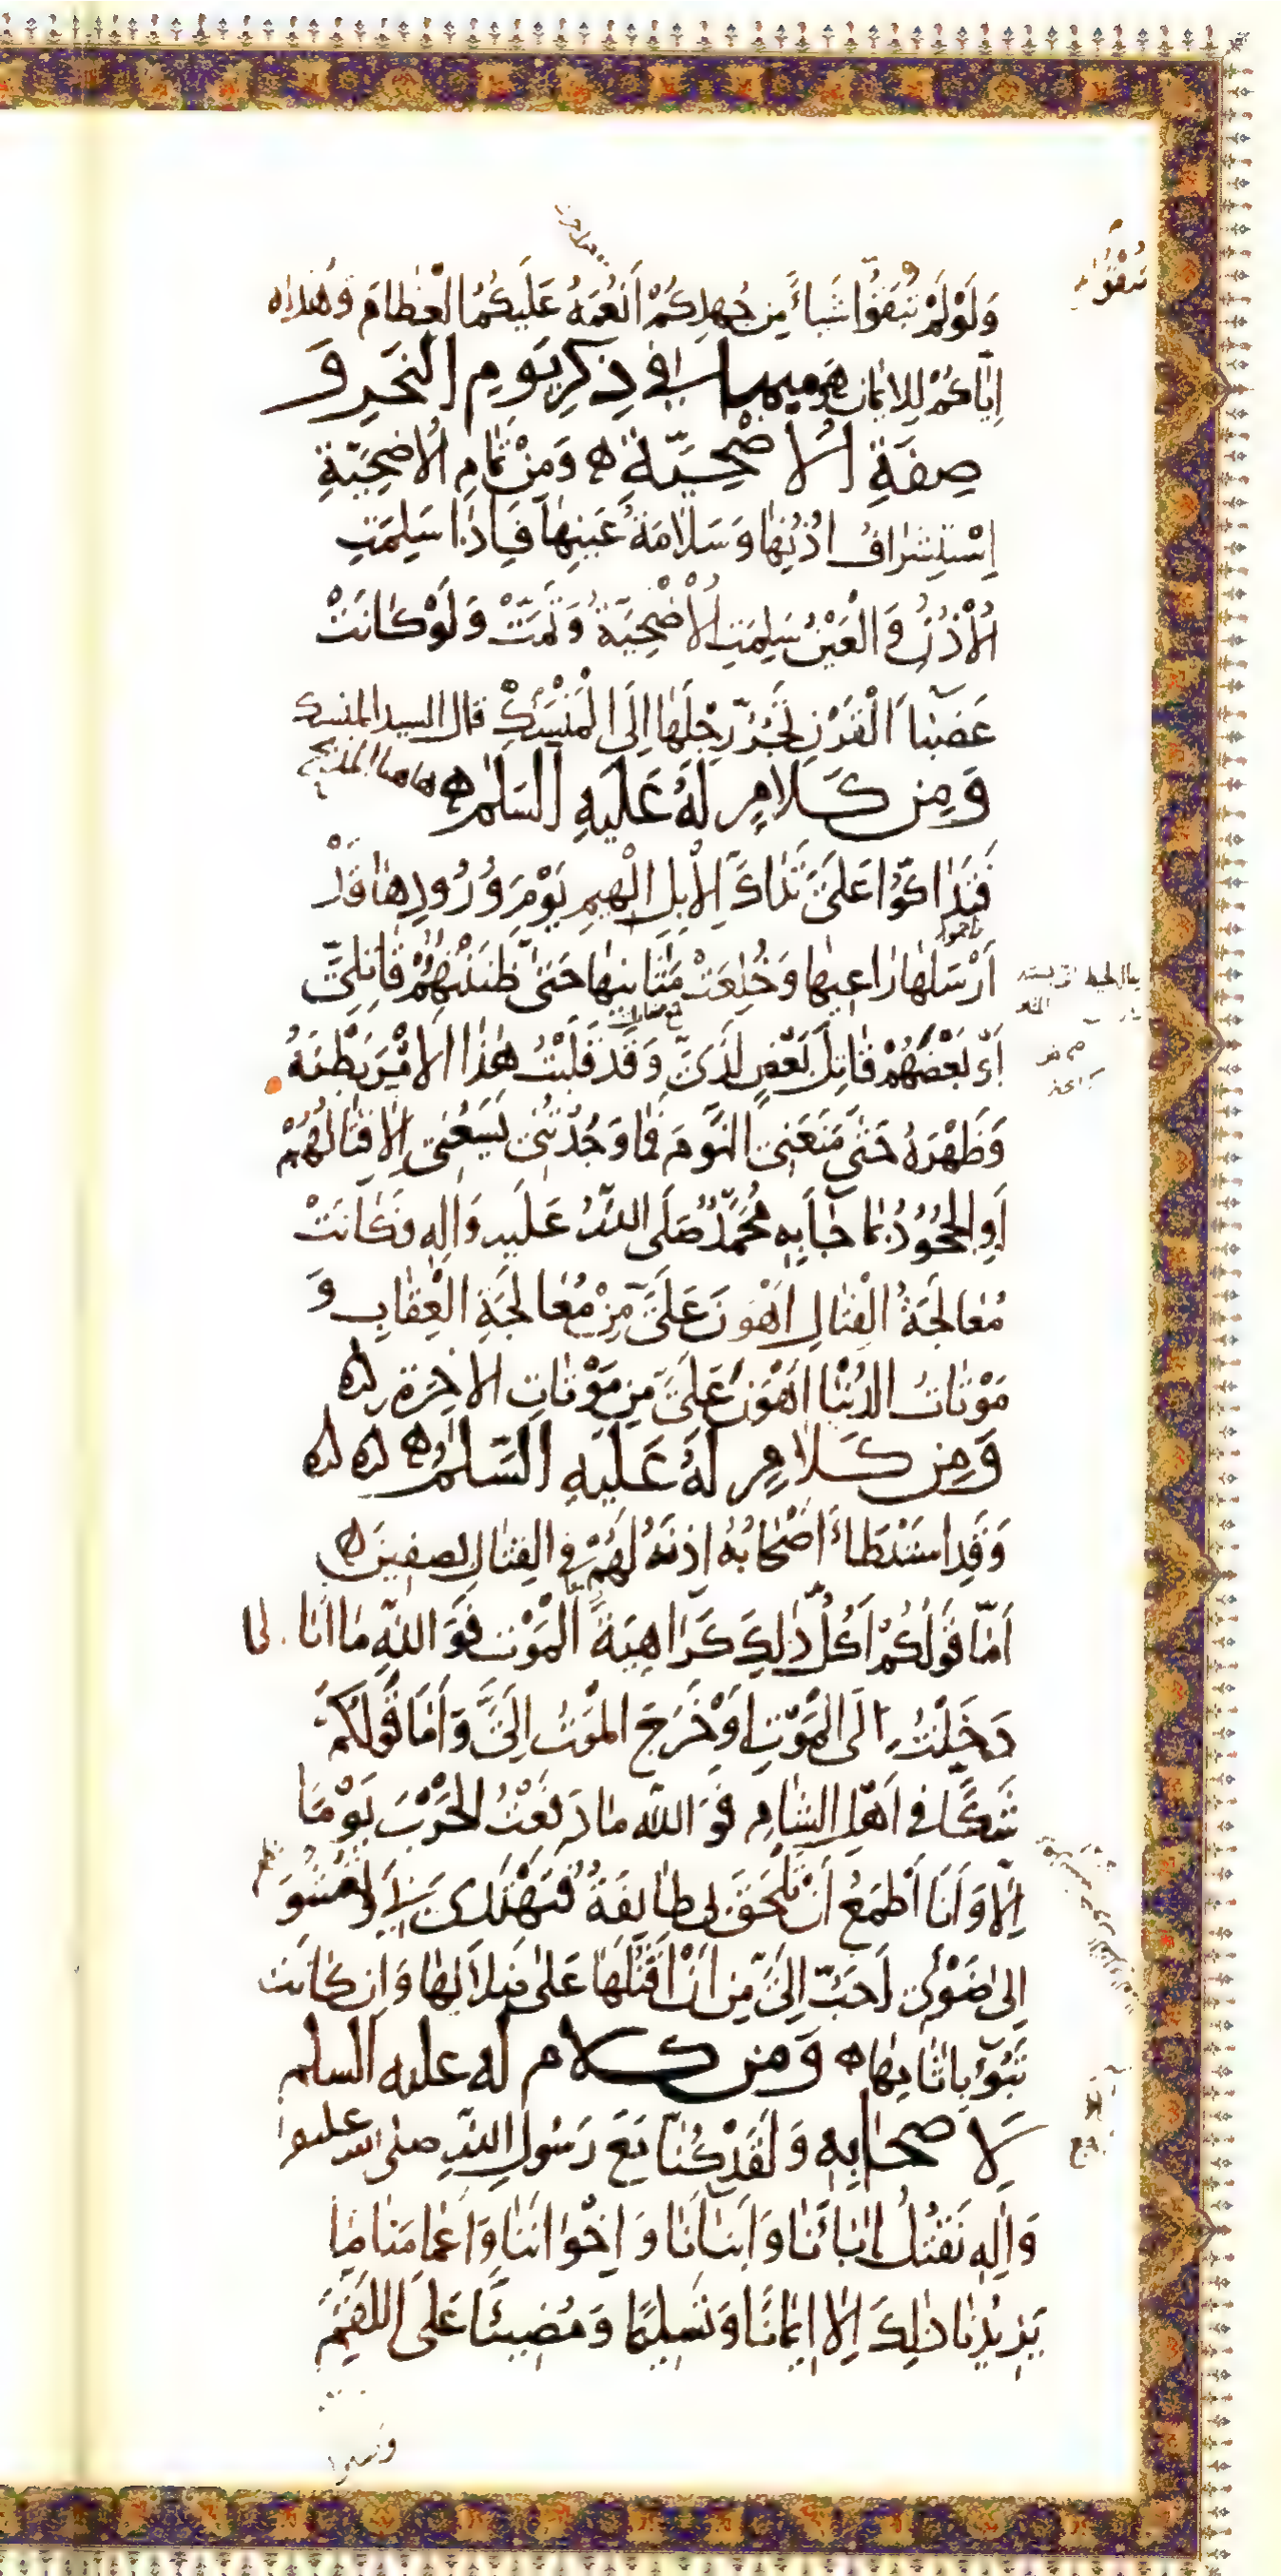 وَلَوْ لَمْ تُبْقُوا شَيْـاءً مِن جُهْدِكُمْ أَنْعُمَهُ عَلَيْكُمُ الْعِظَامَ وَهُدَاهُ
اِيَّاكُمْ لِلْاِيمَانِ ه وَمِنهَا فِي ذِكْرِ يَوْمِ النَّحْرِ وَ
صِفَةِ الْاُضْحِيَّةِ ه وَمِنْ تَمَامِ الْاُضْحِيَّةِ
اِسْتِشْرَافُ اُذُنِهَا وَسَلَامَةُ عَيْنِهَا فَاِذَا سَلِمَتِ
الْاُذُنُ وَالْعَيْنُ سَلِمَتِ الْاُضْحِيَّةُ وَتَمَّتْ وَلَوْ كَانَتْ
عَضْبَاءَ الْقَرْنِ تَجُرُّ رِجْلَهَا اِلَى الْمَنْسَكِ قال السيد المنسك
هاهنا المذبح
وَمِن كَلَامٍ لَهُ عَلَيْهِ السَّلٰمُ ه
فَتَدَاكُّوا عَلَيَّ تَدَاكَّ الْاِبِلِ الْهِيمِ يَوْمَ وُرُودِهَا قَدْ
اَرْسَلَهَا رَاعِيهَا وَخُلِعَتْ مَثَانِيهَا حَتَّى ظَنَنْتُ اَنَّهُمْ قَاتِلِيَّ
اَوْ بَعْضُهُمْ قَاتِلُ بَعْضٍ لَدَيَّ وَقَدْ قَلَّبْتُ هٰذَا الْاَمْرَ بَطْنَهُ
وَظَهْرَهُ حَتَّى مَنَعَنِي النَّوْمَ فَمَا وَجَدْتُنِي يَسَعُنِي اِلَّا قِتَالُهُمْ
اَوِ الْجُحُودُ بِمَا جَاءَ بِهِ مُحَمَّدٌ صَلَّى اللّٰهُ عَلَيهِ وَاٰلِهِ فَكَانَتْ
مُعَالَجَةُ الْقِتَالِ اَهْوَنَ عَلَيَّ مِنْ مُعَالَجَةِ الْعِقَابِ وَ
مَوْتَاتُ الدُّنْيَا اَهْوَنَ عَلَيَّ مِنْ مَوْتَاتِ الْاٰخِرَةِ
وَمِن كَلَامٍ لَهُ عَلَيْهِ السَّلٰمُ ه
وَقَدِ اسْتَبْطَاءَ اَصْحَابُهُ اِذْنَهُ لَهُمْ فِي الْقِتَالِ بِصِفِّينَ ه
اَمَّا قَوْلُكُمْ اَكُلَّ ذٰلِكَ كَرَاهِيَةَ الْمَوْتِ فَوَاللّٰهِ مَا اُبَالِي
دَخَلْتُ اِلَى الْمَوْتِ اَوْ خَرَجَ الْمَوْتُ اِلَيَّ وَاَمَّا قَوْلُكُمْ
شَكًّا فِي اَهْلِ الشَّامِ فَوَاللّٰهِ مَا دَفَعْتُ الْحَرْبَ يَوْمًا
اِلَّا وَاَنَا اَطْمَعُ اَنْ تَلْحَقَ بِي طَائِفَةٌ فَتَهْتَدِيَ بِي وَتَعْشُوَ
اِلَى ضَوْئِي اَحَبُّ اِلَيَّ مِنْ اَنْ اَقْتُلَهَا عَلَى ضَلَالِهَا وَاِن كَانَت
تَبُوءُ بِاٰثَامِهَا ه وَمِن كَلَام لَه عليه السلم
لِاَصْحَابِهِ وَلَقَدْ كُنَّا مَعَ رَسُولِ اللّٰهِ صلى الله عليه
وَاٰلِهِ نَقْتُلُ اٰبَاءَنَا وَاَبْنَاءَنَا وَاِخْوَانَنَا وَاَعْمَامَنَا مَا
يَزِيدُنَا ذٰلِكَ اِلَّا اِيمَانًا وَتَسْلِيمًا وَمُضِيًّا عَلَى اللَّقَمِ